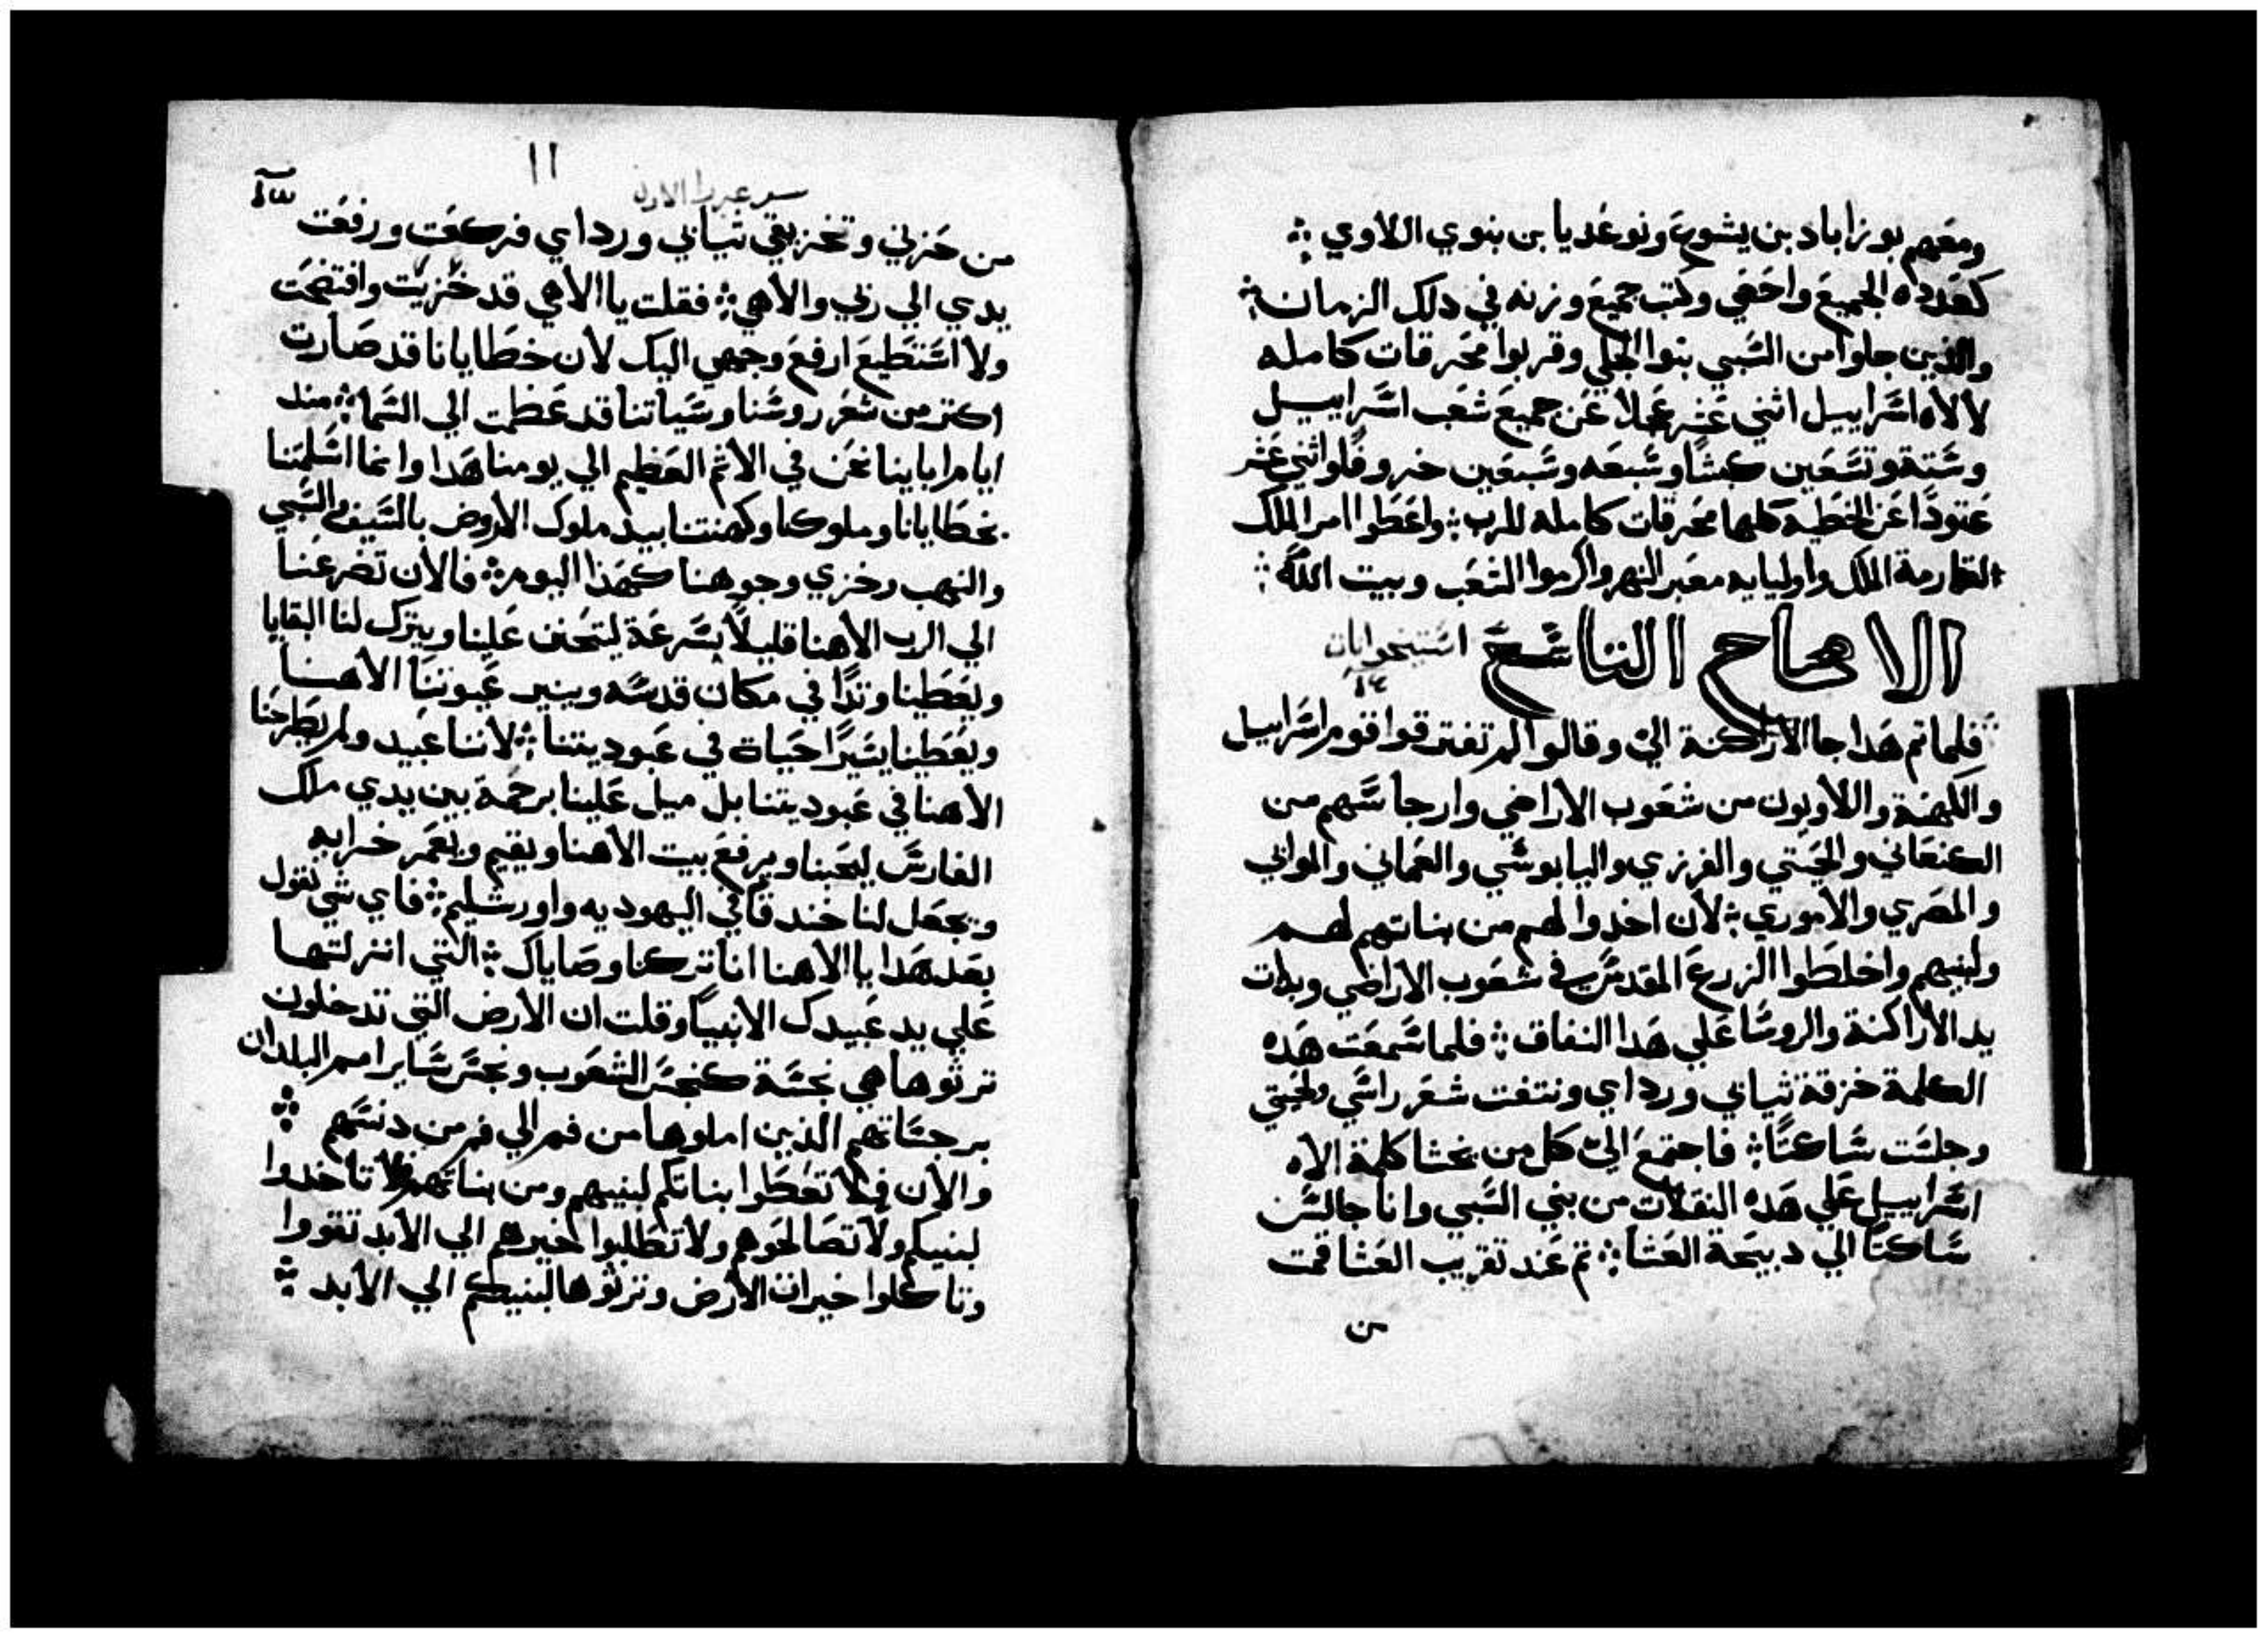 ومعهم يوزاباد بن يشوع ونوعديا بن بنوي اللاوي
كعدده الجميع واحصي وكتب جميع وزنه في دلك الزمان
والذين جاوا من السبي بنوا الجلي وقربوا محرقات كامله
لالاه اسراييل اثني عشر عجلا عن جميع شعب اسراييل
وستة وتسعين كبشا وسبعه وسبعين خروفا واثني عشر
عتودا عن الخطيه كلها محرقات كامله للرب واعطوا امر الملك
لقهارمة الملك واوليايه معبر النهر واكرموا الشعب وبيت الله
الاصحاح التاسع
فلما تم هدا جا الاراكنة الي وقالوا لم تفترقوا قوم اسراييل
والكهنة واللاويون من شعوب الاراضي وارجاسهم من
الكنعاني والحيتي والفرزي واليابوسي والعماني والموابي
والمصري والاموري لان اخدوا لهم من بناتهم لهم
ولبنيهم واخلطوا الزرع المقدس في شعوب الاراضي وبدات
يد الاراكنة والروسا علي هدا النفاق فلما سمعت هده
الكلمة خرقة ثيابي ورداي ونتفت شعر راسي ولحيتي
وجلست ساكتا فاجتمع الي كل من يخشا كلمة الاه
اسراييل علي هده النقلات من بني السبي وانا جالس
ساكتا الي دبيحة العشا تم عند تقريب العشا قمت
من
١١
سفر عزرا الاول
من حزني وتخزيقي ثيابي ورداي فركعت ورفعت
يدي الي ربي والاهي فقلت يا الاهي قد خزيت وافتضحت
ولا استطيع ارفع وجهي اليك لان خطايانا قد صارت
اكتر من شعر روسنا وسياتنا قد عظمت الي السما مند
ايام اباينا نحن في الاثم العظيم الي يومنا هدا وانما اسلمتنا
بخطايانا وملوكنا وكهنتنا بيد ملوك الارض بالسيف والسبي
والنهب وخزي وجوهنا كهذا اليوم فالان تضرعنا
الي الرب الاهنا قليلا بسرعة ليتحنن علينا ويترك لنا البقايا
ويعطينا وتدا في مكان قدسه وينير عيوننا الاهنا
ويعطينا يسيرا حياة في عبوديتنا لاننا عبيد ولم يطرحنا
الاهنا في عبوديتنا بل ميل علينا برحمة بين يدي ملك
الفارس ليحبنا ويرفع بيت الاهنا ويقيم ويعمر خرابه
ويجعل لنا خندقا في اليهوديه واورشليم فاي شي نقول
بعد هدا يا الاهنا انا تركنا وصاياك التي انزلتها
علي يد عبيدك الانبيا وقلت ان الارض التي تدخلون
ترثوها هي نجسة كنجس الشعوب ونجس ساير امم البلدان
برجساتهم الذين املوها من فم الي فم من دنسهم
والان فلا تعطوا بناتكم لبنيهم ومن بناتهم لا تاخدوا
لبنيكم ولا تصالحوهم ولا تطلبوا خيرهم الي الابد تقووا
وتاكلوا خيرات الارض وترثوها لبنيكم الي الابد